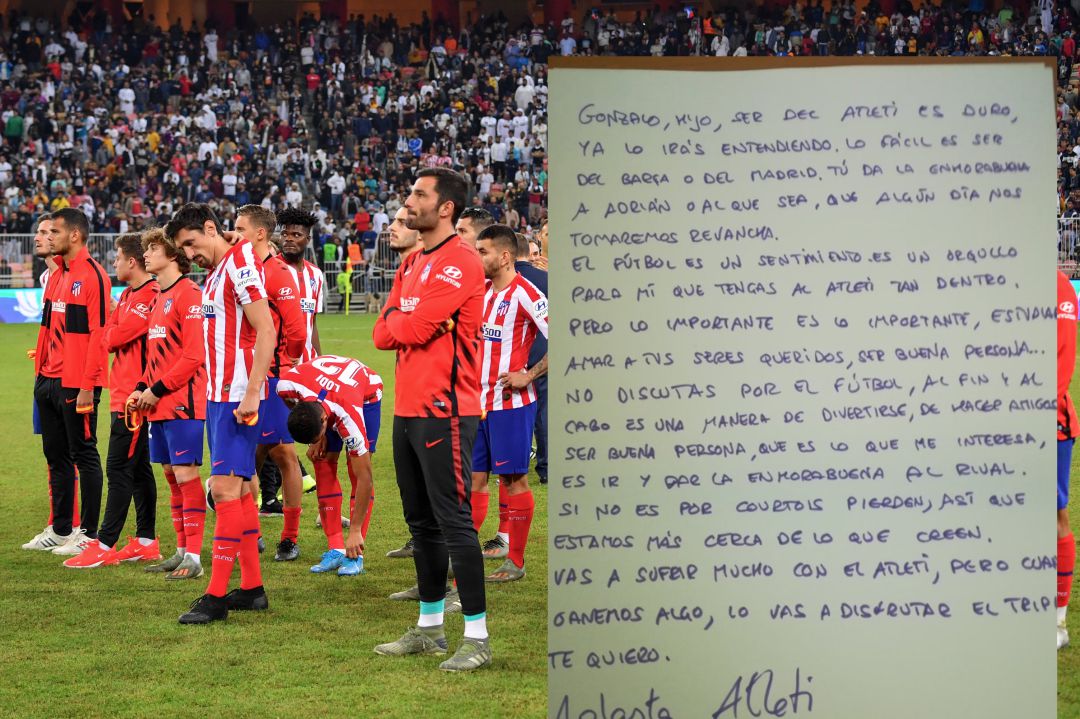 GONZALO, HIJO, SER DEL ATLETI ES DURO,
YA LO IRÁS ENTENDIENDO. LO FÁCIL ES SER
DEL BARÇA O DEL MADRID. TÚ DA LA ENHORABUENA
A ADRIÁN O AL QUE SEA, QUE ALGÚN DÍA NOS
TOMAREMOS REVANCHA.
EL FÚTBOL ES UN SENTIMIENTO. ES UN ORGULLO
PARA MÍ QUE TENGAS AL ATLETI TAN DENTRO.
PERO LO IMPORTANTE ES LO IMPORTANTE, ESTUDIAR
AMAR A TUS SERES QUERIDOS, SER BUENA PERSONA...
NO DISCUTAS POR EL FÚTBOL, AL FIN Y AL
CABO ES UNA MANERA DE DIVERTIRSE, DE HACER AMIGOS
SER BUENA PERSONA, QUE ES LO QUE ME INTERESA,
ES IR Y DAR LA ENHORABUENA AL RIVAL.
SI NO ES POR COURTOIS PIERDEN, ASÍ QUE
ESTAMOS MÁS CERCA DE LO QUE CREEN.
VAS A SUFRIR MUCHO CON EL ATLETI, PERO CUA
GANEMOS ALGO, LO VAS A DISFRUTAR EL TRIP
TE QUIERO.
Atleti
LODI
HYUNDAI
HYUNDAI
500